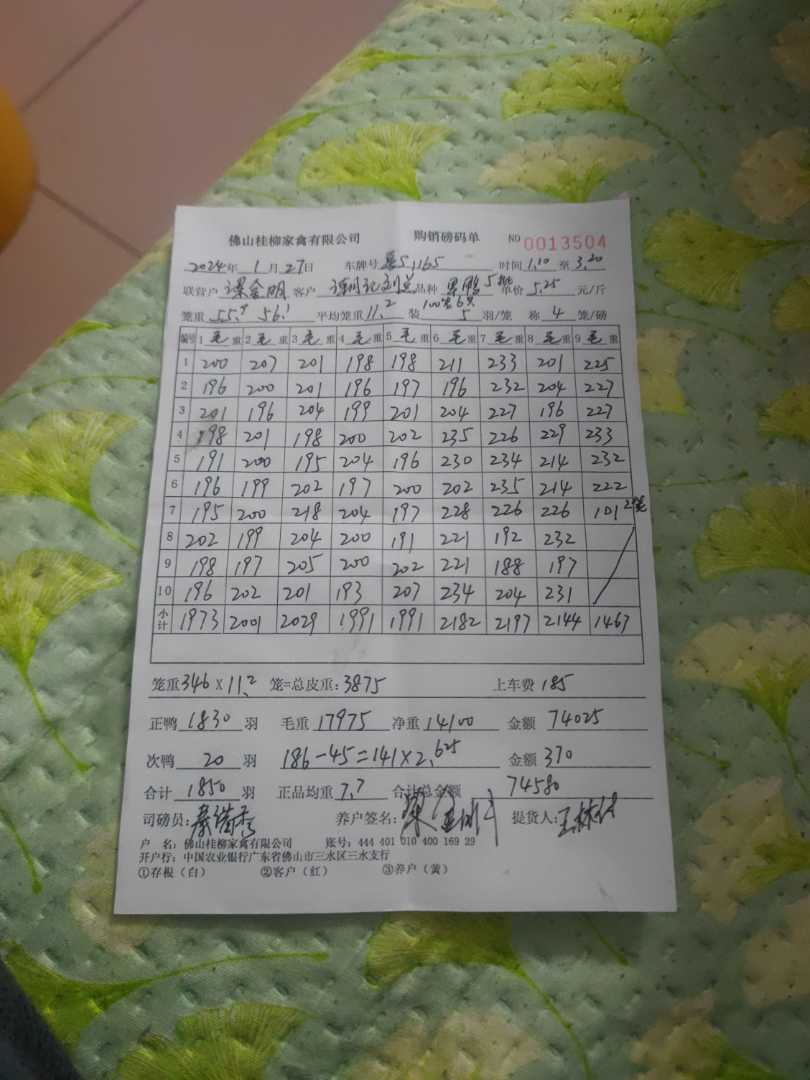 佛山桂柳家禽有限公司 购销磅码单 NO 0013504
2024年 1月 27日 车牌号 粤S1165 时间 1.10 至 3.20
联营户 梁金明 客户 品种 鸭 5批 单价 5.25 元/斤
笼重 55.9 56.1 平均笼重 11.2 装 5 羽/笼 称 4 笼/磅
编号 1 毛 重 2 毛 重 3 毛 重 4 毛 重 5 毛 重 6 毛 重 7 毛 重 8 毛 重 9 毛 重
1 200 207 201 198 198 211 233 201 225
2 196 200 201 196 197 196 232 204 227
3 201 196 204 199 201 204 227 196 227
4 198 201 198 200 202 235 226 229 233
5 191 200 195 204 196 230 234 214 232
6 196 199 202 197 200 202 235 214 222
7 195 200 218 204 197 228 226 226 101 2笼
8 202 199 204 200 191 221 192 232
9 198 197 205 200 202 221 188 197
10 196 202 201 193 207 234 204 231
小计 1973 2001 2029 1991 1991 2182 2197 2144 1467
笼重 346 X 11.2 笼=总皮重: 3875 上车费 185
正鸭 1830 羽 毛重 17975 净重 14100 金额 74025
次鸭 20 羽 186-45=141×2.625 金额 370
合计 1850 羽 正品均重 7.7 合计总金额 74580
司磅员: 养户签名: 提货人:
户 名: 佛山桂柳家禽有限公司 账号: 444 401 010 400 169 29
开户行: 中国农业银行广东省佛山市三水区三水支行
①存根(白) ②客户(红) ③养户(黄)